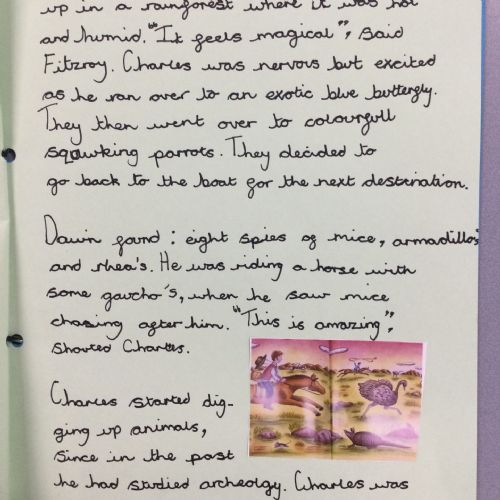 up in a rainforest where it was hot
and humid. "It feels magical", said
Fitzroy. Charles was nervous but excited
as he ran over to an exotic blue butterfly.
They then went over to colourfull
squwking parrots. They decided to
go back to the boat for the next destination.
Dawin found: eight spies of mice, armadillos
and rhea's. He was riding a horse with
some gaucho's, when he saw mice
chasing after him. "This is amazing",
shouted Charles.
Charles started dig-
ging up animals,
since in the past
he had studied archeolgy. Charles was